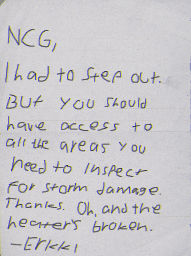 NCG,
I had to step out.
But you should
have access to
all the areas you
need to inspect
for storm damage.
Thanks. Oh, and the
heater's broken.
-Erkki